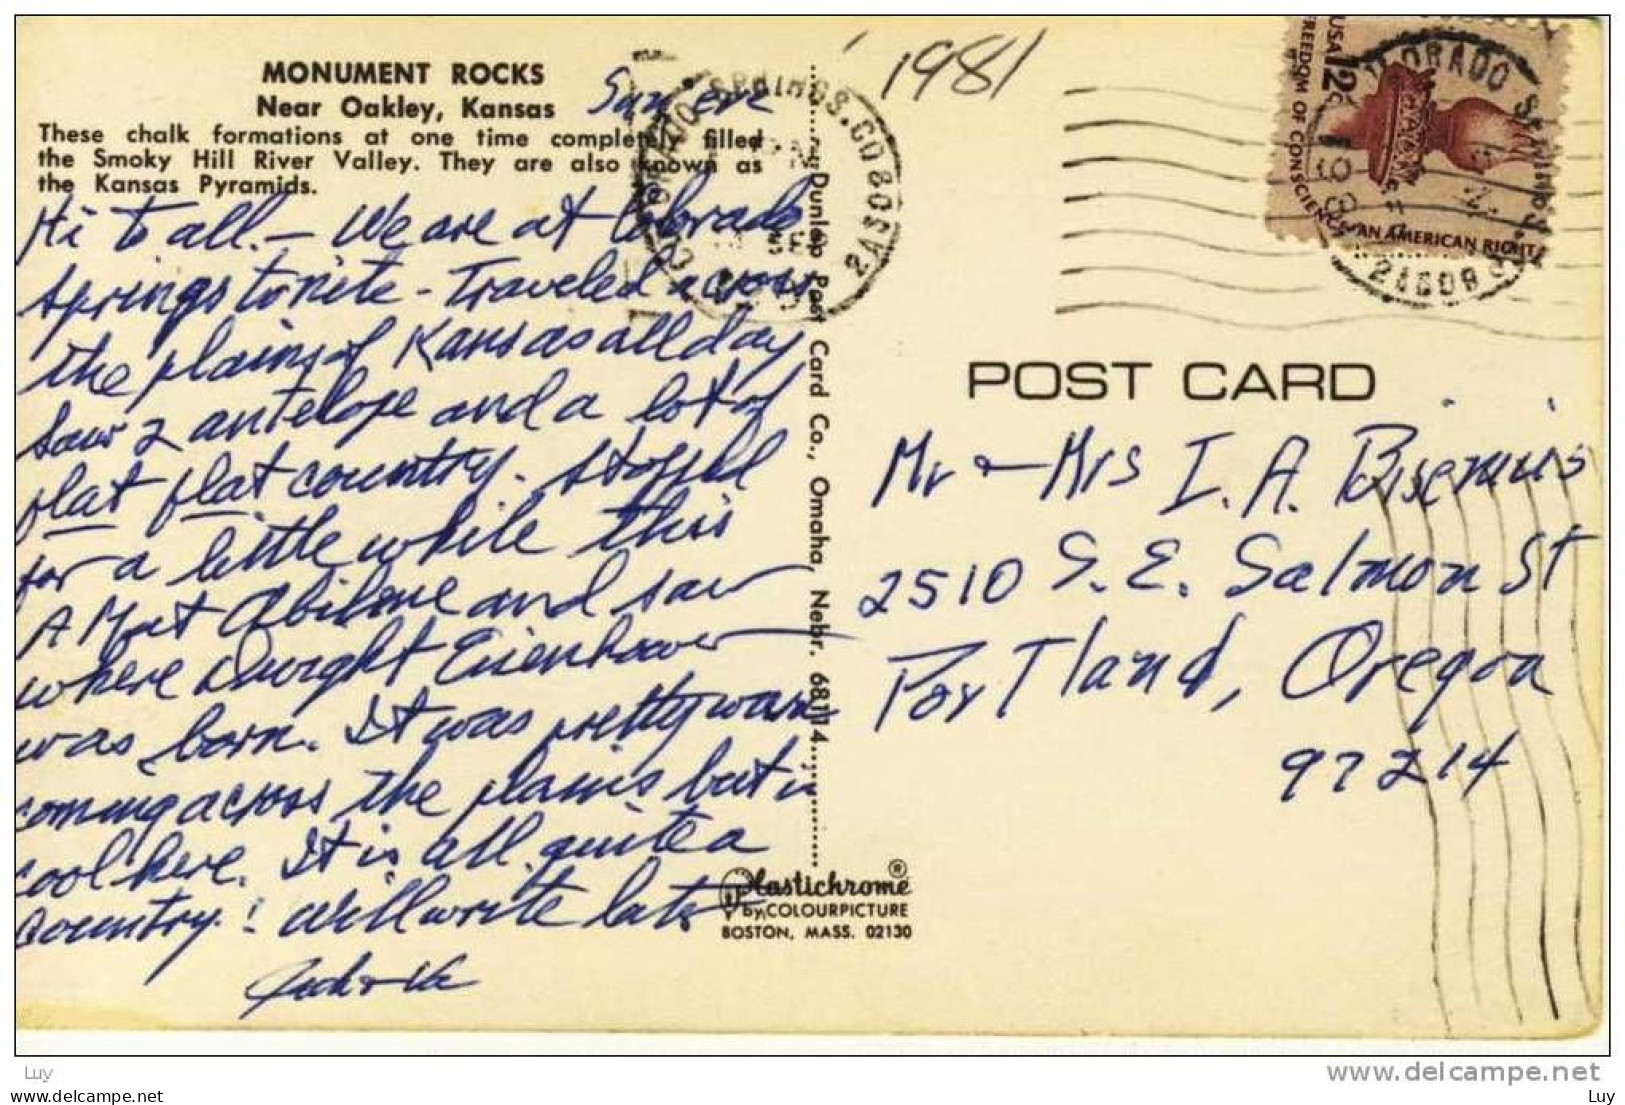 MONUMENT ROCKS
Near Oakley, Kansas
These chalk formations at one time completely filled
the Smoky Hill River Valley. They are also known as
the Kansas Pyramids.
Sun eve
Hi to all. - We are at Colorado
Springs tonite - Traveled across
the plains of Kansas all day
Saw 2 antelope and a lot of
flat flat country. Stopped
for a little while this
A M at Abilene and saw
where Dwight Eisenhower
was born. It was pretty warm
coming across the plains but is
cool here. It is all quite a
Country! Will write later
Dunlap Post Card Co., Omaha, Nebr. 68114
Plastichrome ®
by COLOURPICTURE
BOSTON, MASS. 02130
1981
COLORADO SPRINGS, CO 809
USA 12c
FREEDOM OF CONSCIENCE-AN AMERICAN RIGHT
POST CARD
Mr & Mrs I. A.
2510 S. E. Salmon St
Portland, Oregon
97214
Luv
www.delcampe.net
Luv